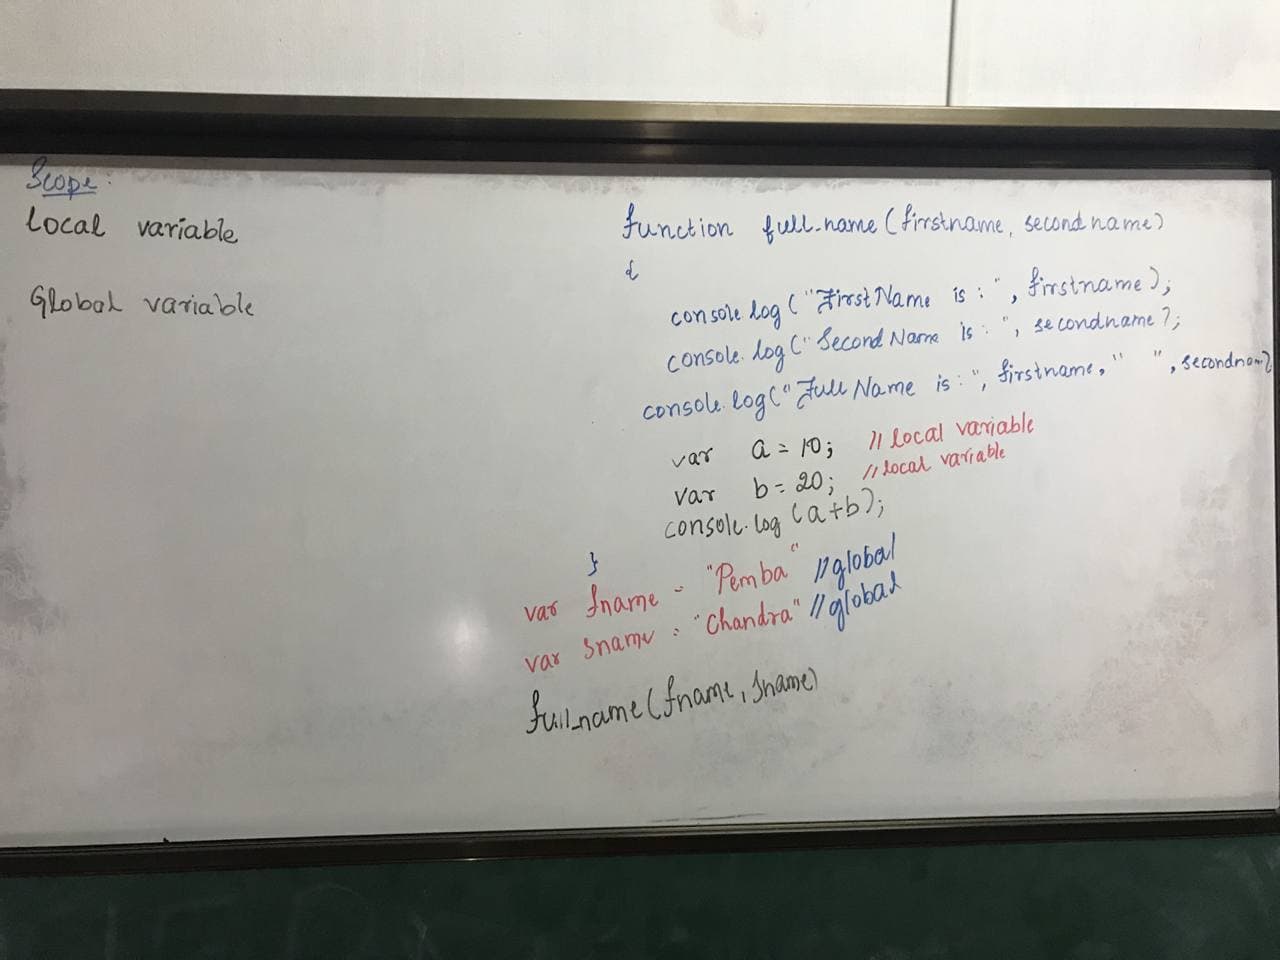 Scope:
Local variable
Global variable
function full_name(firstname, secondname)
{
console.log("First Name is : ", firstname);
console.log("Second Name is : ", secondname);
console.log("Full Name is : ", firstname, " ", secondname
var a = 10; // local variable
var b = 20; // local variable
console.log(a+b);
}
var fname = "Pemba" // global
var sname = "Chandra" // global
full_name(fname, sname)